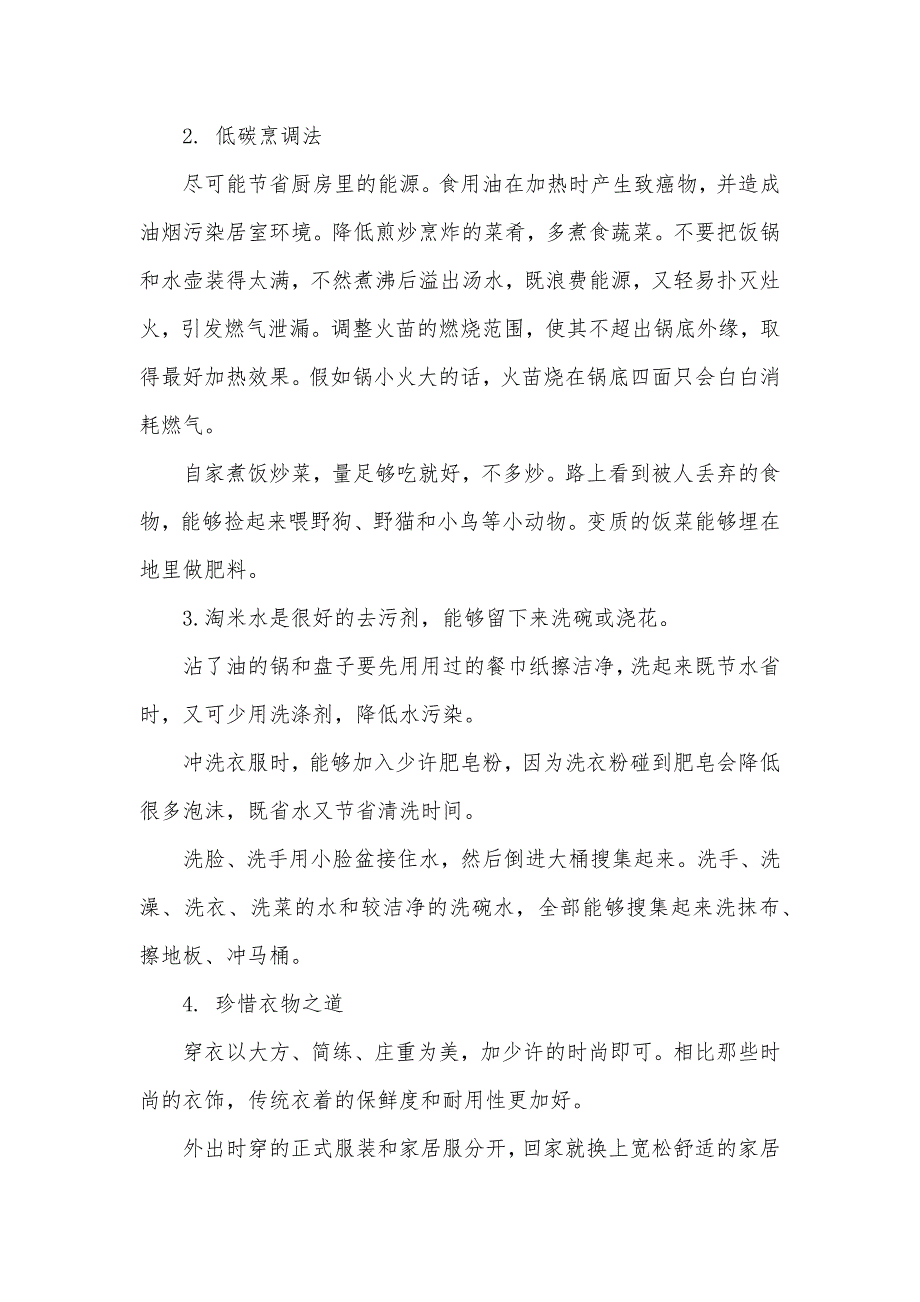 2. 低碳烹调法
尽可能节省厨房里的能源。食用油在加热时产生致癌物，并造成
油烟污染居室环境。降低煎炒烹炸的菜肴，多煮食蔬菜。不要把饭锅
和水壶装得太满，不然煮沸后溢出汤水，既浪费能源，又轻易扑灭灶
火，引发燃气泄漏。调整火苗的燃烧范围，使其不超出锅底外缘，取
得最好加热效果。假如锅小火大的话，火苗烧在锅底四面只会白白消
耗燃气。
自家煮饭炒菜，量足够吃就好，不多炒。路上看到被人丢弃的食
物，能够捡起来喂野狗、野猫和小鸟等小动物。变质的饭菜能够埋在
地里做肥料。
3.淘米水是很好的去污剂，能够留下来洗碗或浇花。
沾了油的锅和盘子要先用用过的餐巾纸擦洁净，洗起来既节水省
时，又可少用洗涤剂，降低水污染。
冲洗衣服时，能够加入少许肥皂粉，因为洗衣粉碰到肥皂会降低
很多泡沫，既省水又节省清洗时间。
洗脸、洗手用小脸盆接住水，然后倒进大桶搜集起来。洗手、洗
澡、洗衣、洗菜的水和较洁净的洗碗水，全部能够搜集起来洗抹布、
擦地板、冲马桶。
4. 珍惜衣物之道
穿衣以大方、简练、庄重为美，加少许的时尚即可。相比那些时
尚的衣饰，传统衣着的保鲜度和耐用性更加好。
外出时穿的正式服装和家居服分开，回家就换上宽松舒适的家居